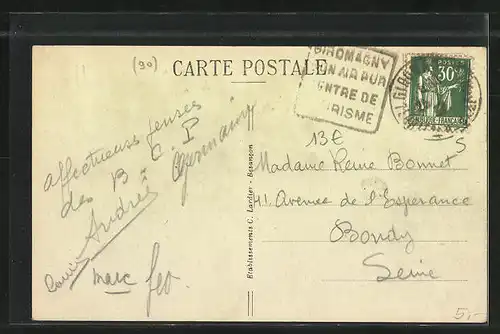 (90)
CARTE POSTALE
GIROMAGNY
SON AIR PUR
CENTRE DE
TOURISME
POSTES
30
RÉPUBLIQUE FRANÇAISE
13€
5
affectueuses pensées
des B C P
Germaine
André
Louis
marc Geo
Etablissements C. Lardier - Besançon
Madame Reine Bonnet
41. Avenue de l'Espérance
Bondy
Seine
5,-